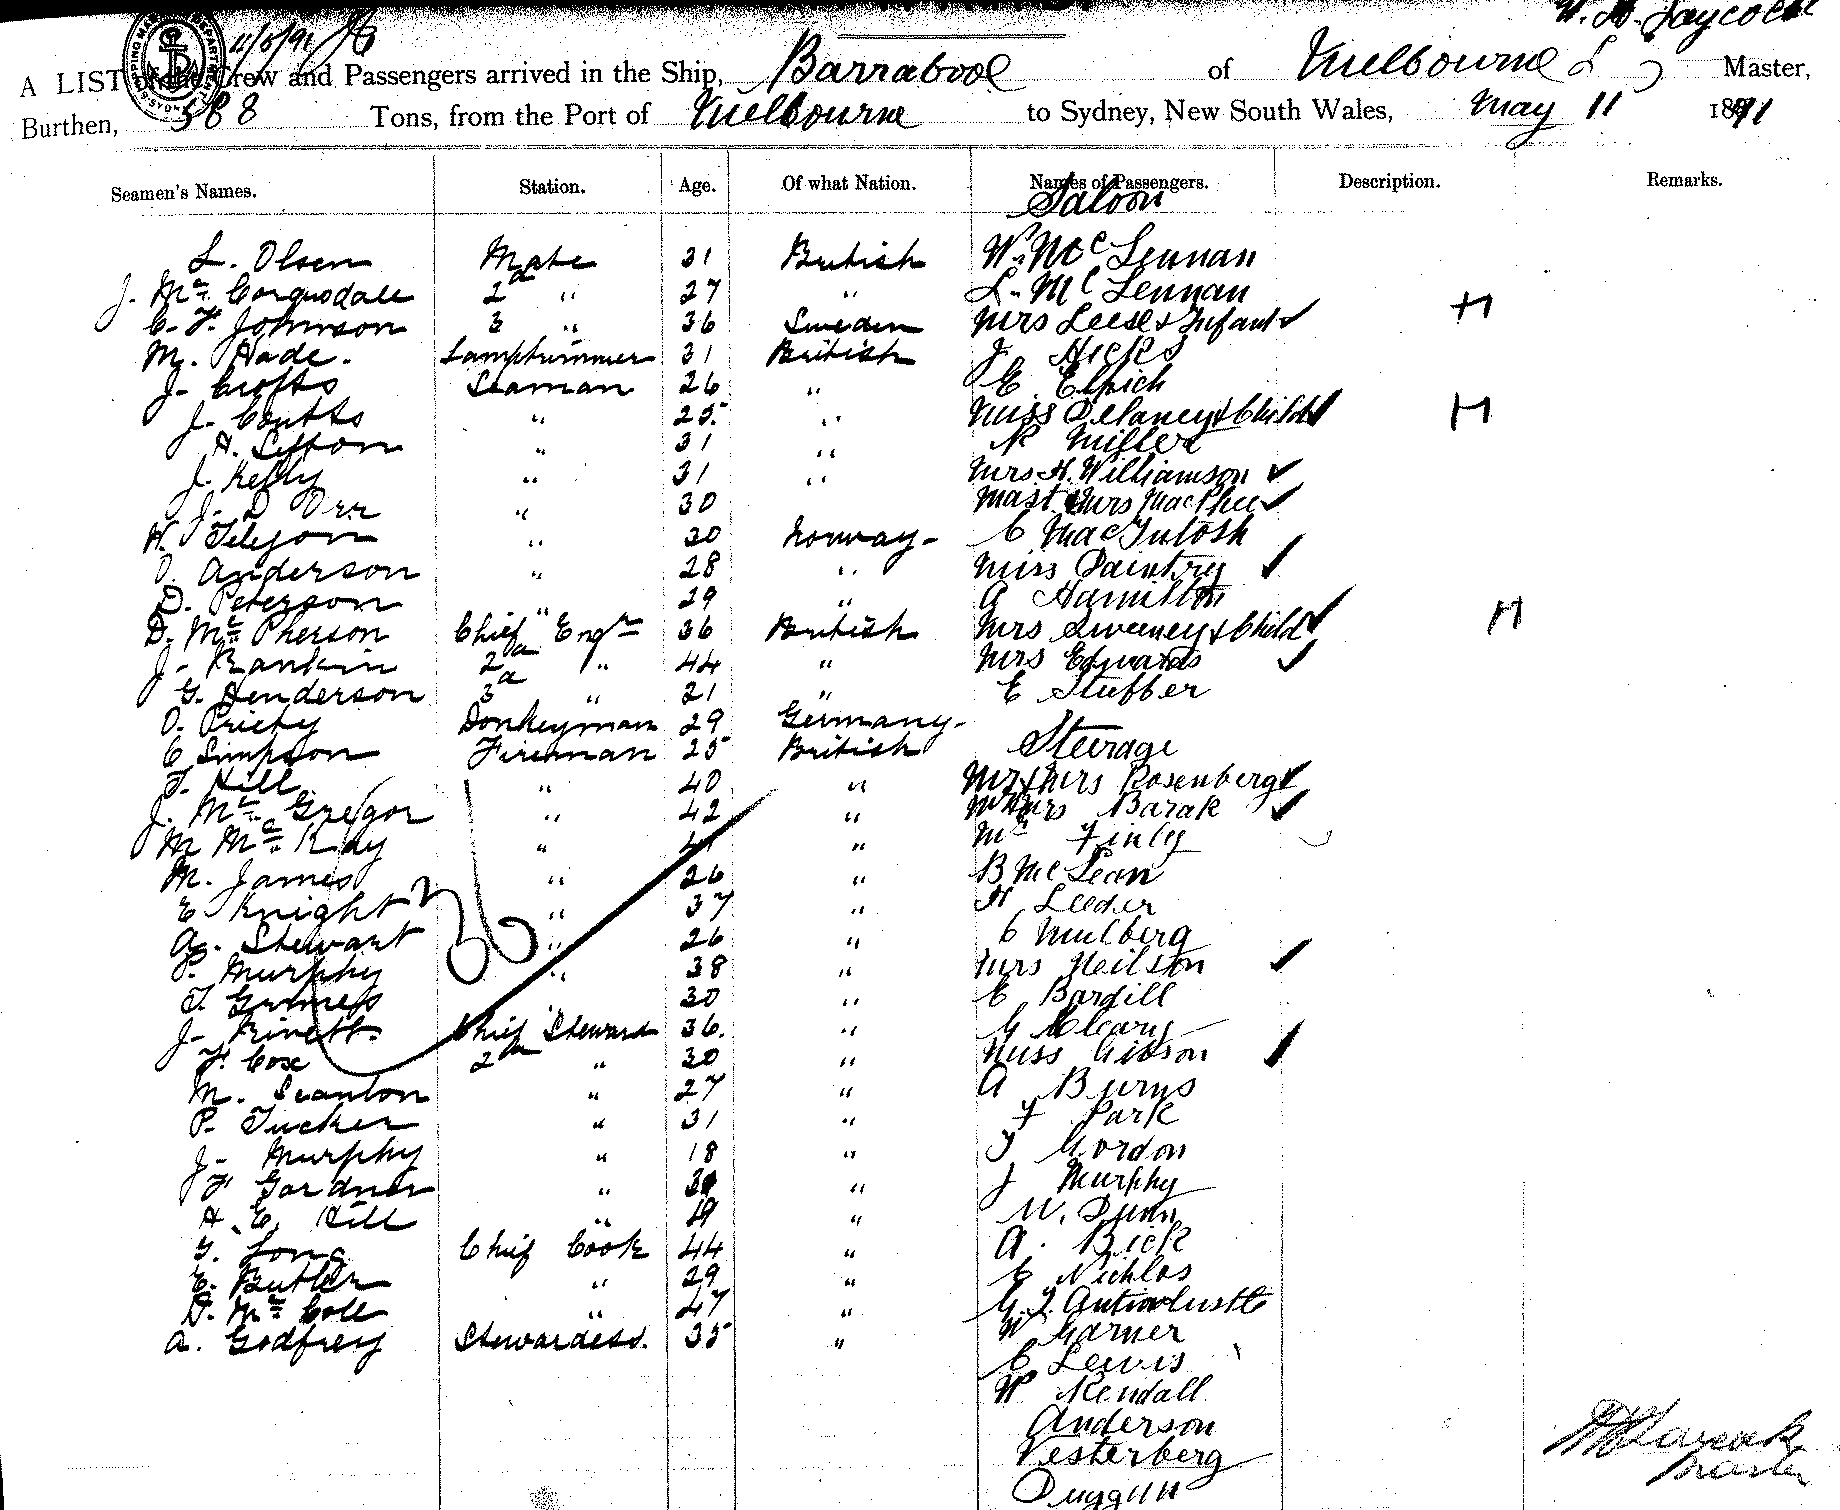 11/5/91
A LIST of the Crew and Passengers arrived in the Ship, Barrabool of Melbourne Master,
Burthen, 588 Tons, from the Port of Melbourne to Sydney, New South Wales, May 11 1891
Seamen's Names. Station. Age. Of what Nation. Names of Passengers. Description. Remarks.
Saloon
L. Olsen Mate 31 British W. McLennan
J. Mc Corquodale 2d " 27 " L. McLennan
C. F. Johnson 3 " 36 Sweden Mrs Leese & Infant ✓ H
M. Hade. Lamptrimmer 31 British J Hicks
J. Crofts Seaman 26 " E Elpich
J. Coutts " 25. " Miss Delaney & Child ✓ H
A. Sefton " 31 " R Miller
J. Kelly " 31 " Mrs H. Williamson ✓
J. D Orr " 30 Mast & Mrs MacPhee ✓
" 30 Norway C MacIntosh
O. Anderson " 28 " Miss Daintry ✓
D. Peterson " 29 " A Hamilton
D. Mc Pherson Chief Engr 36 British Mrs Sweeney & Child ✓ H
J. Rankin 2d " 44 " Mrs Edwards ✓
G. Henderson 3d " 21 " E Stubber
O. Donkeyman 29 Germany
C Simpson Fireman 25 British Steerage
T. Hill " 40 " Mr & Mrs Rosenberg ✓
J. Mc Gregor " 42 " Mr & Mrs Barak ✓
M McKay " " Mr Finly
M. James " 26 " B McLean
E Knight " 37 " H Leeder
A. Stewart 36 " 26 " C Mulberg
P. Murphy " 38 " Mrs Neilson ✓
T. Guiness 30 " E Bardill
J. Rivett Chief Steward 36. " G Cleary
F. Cox 2d " 30 " Miss Gibson ✓
M. Scanlon " 27 " A Burns
P. Tucker " 31 " F Park
J. Murphy " 18 " J Gordon
F Gardner " " J Murphy
A. E. Hill " 19 " W. Dunn
G. Long Chief Cook 44 " A. Bick
E. Butler " 29 " E Nichlos
D. Mc Coll " 47 " G. J.
A. Godfrey Stewardess. 35 " W Garner
C Lewis
W Kendall
Anderson
Vesterberg
Duggan
Master